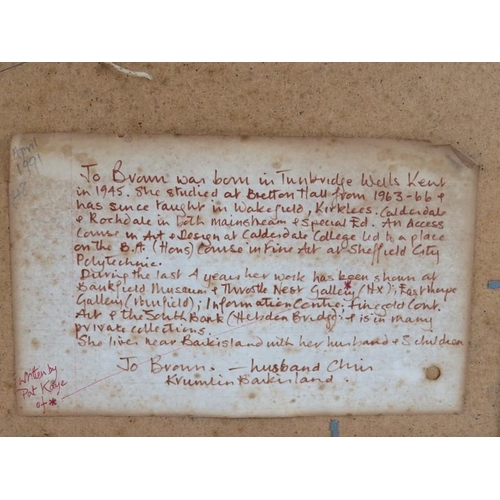 April
1991
Jo Brown was born in Tunbridge Wells Kent
in 1945. She studied at Bretton Hall from 1963-66 &
has since taught in Wakefield, Kirklees, Calderdale
& Rochdale in both mainstream & special Ed. An Access
Course in Art & Design at Calderdale College led to a place
on the B.A (Hons) Course in Fine Art at Sheffield City
Polytechnic.
During the last 4 years her work has been shown at
Bankfield Museum & Throstle Nest Gallery* (Hx); Easthorpe
Gallery (Mirfield); Information Centre, Finegold Cont.
Art & the South Bank (Hebden Bridge); & is in many
private collections.
She lives near Barkisland with her husband & 3 children
Jo Brown. - husband Chris
Krumlin Barkisland.
written by
Pat Kaye
of *